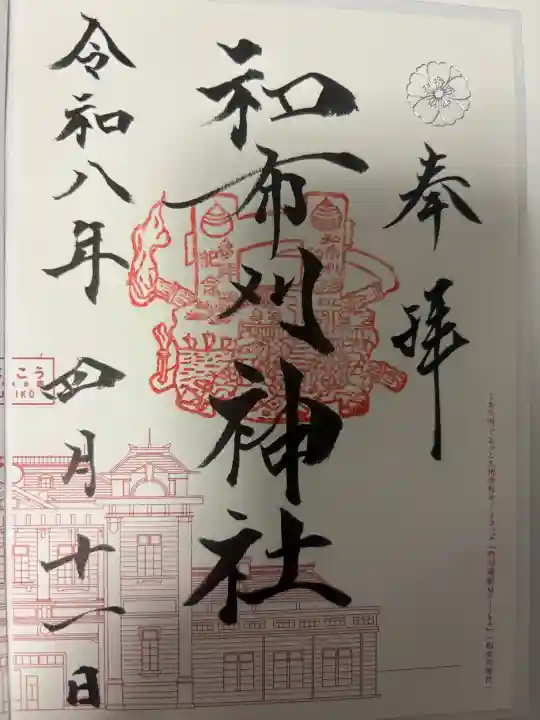 奉拝
和布刈神社
令和八年 四月十一日
こう